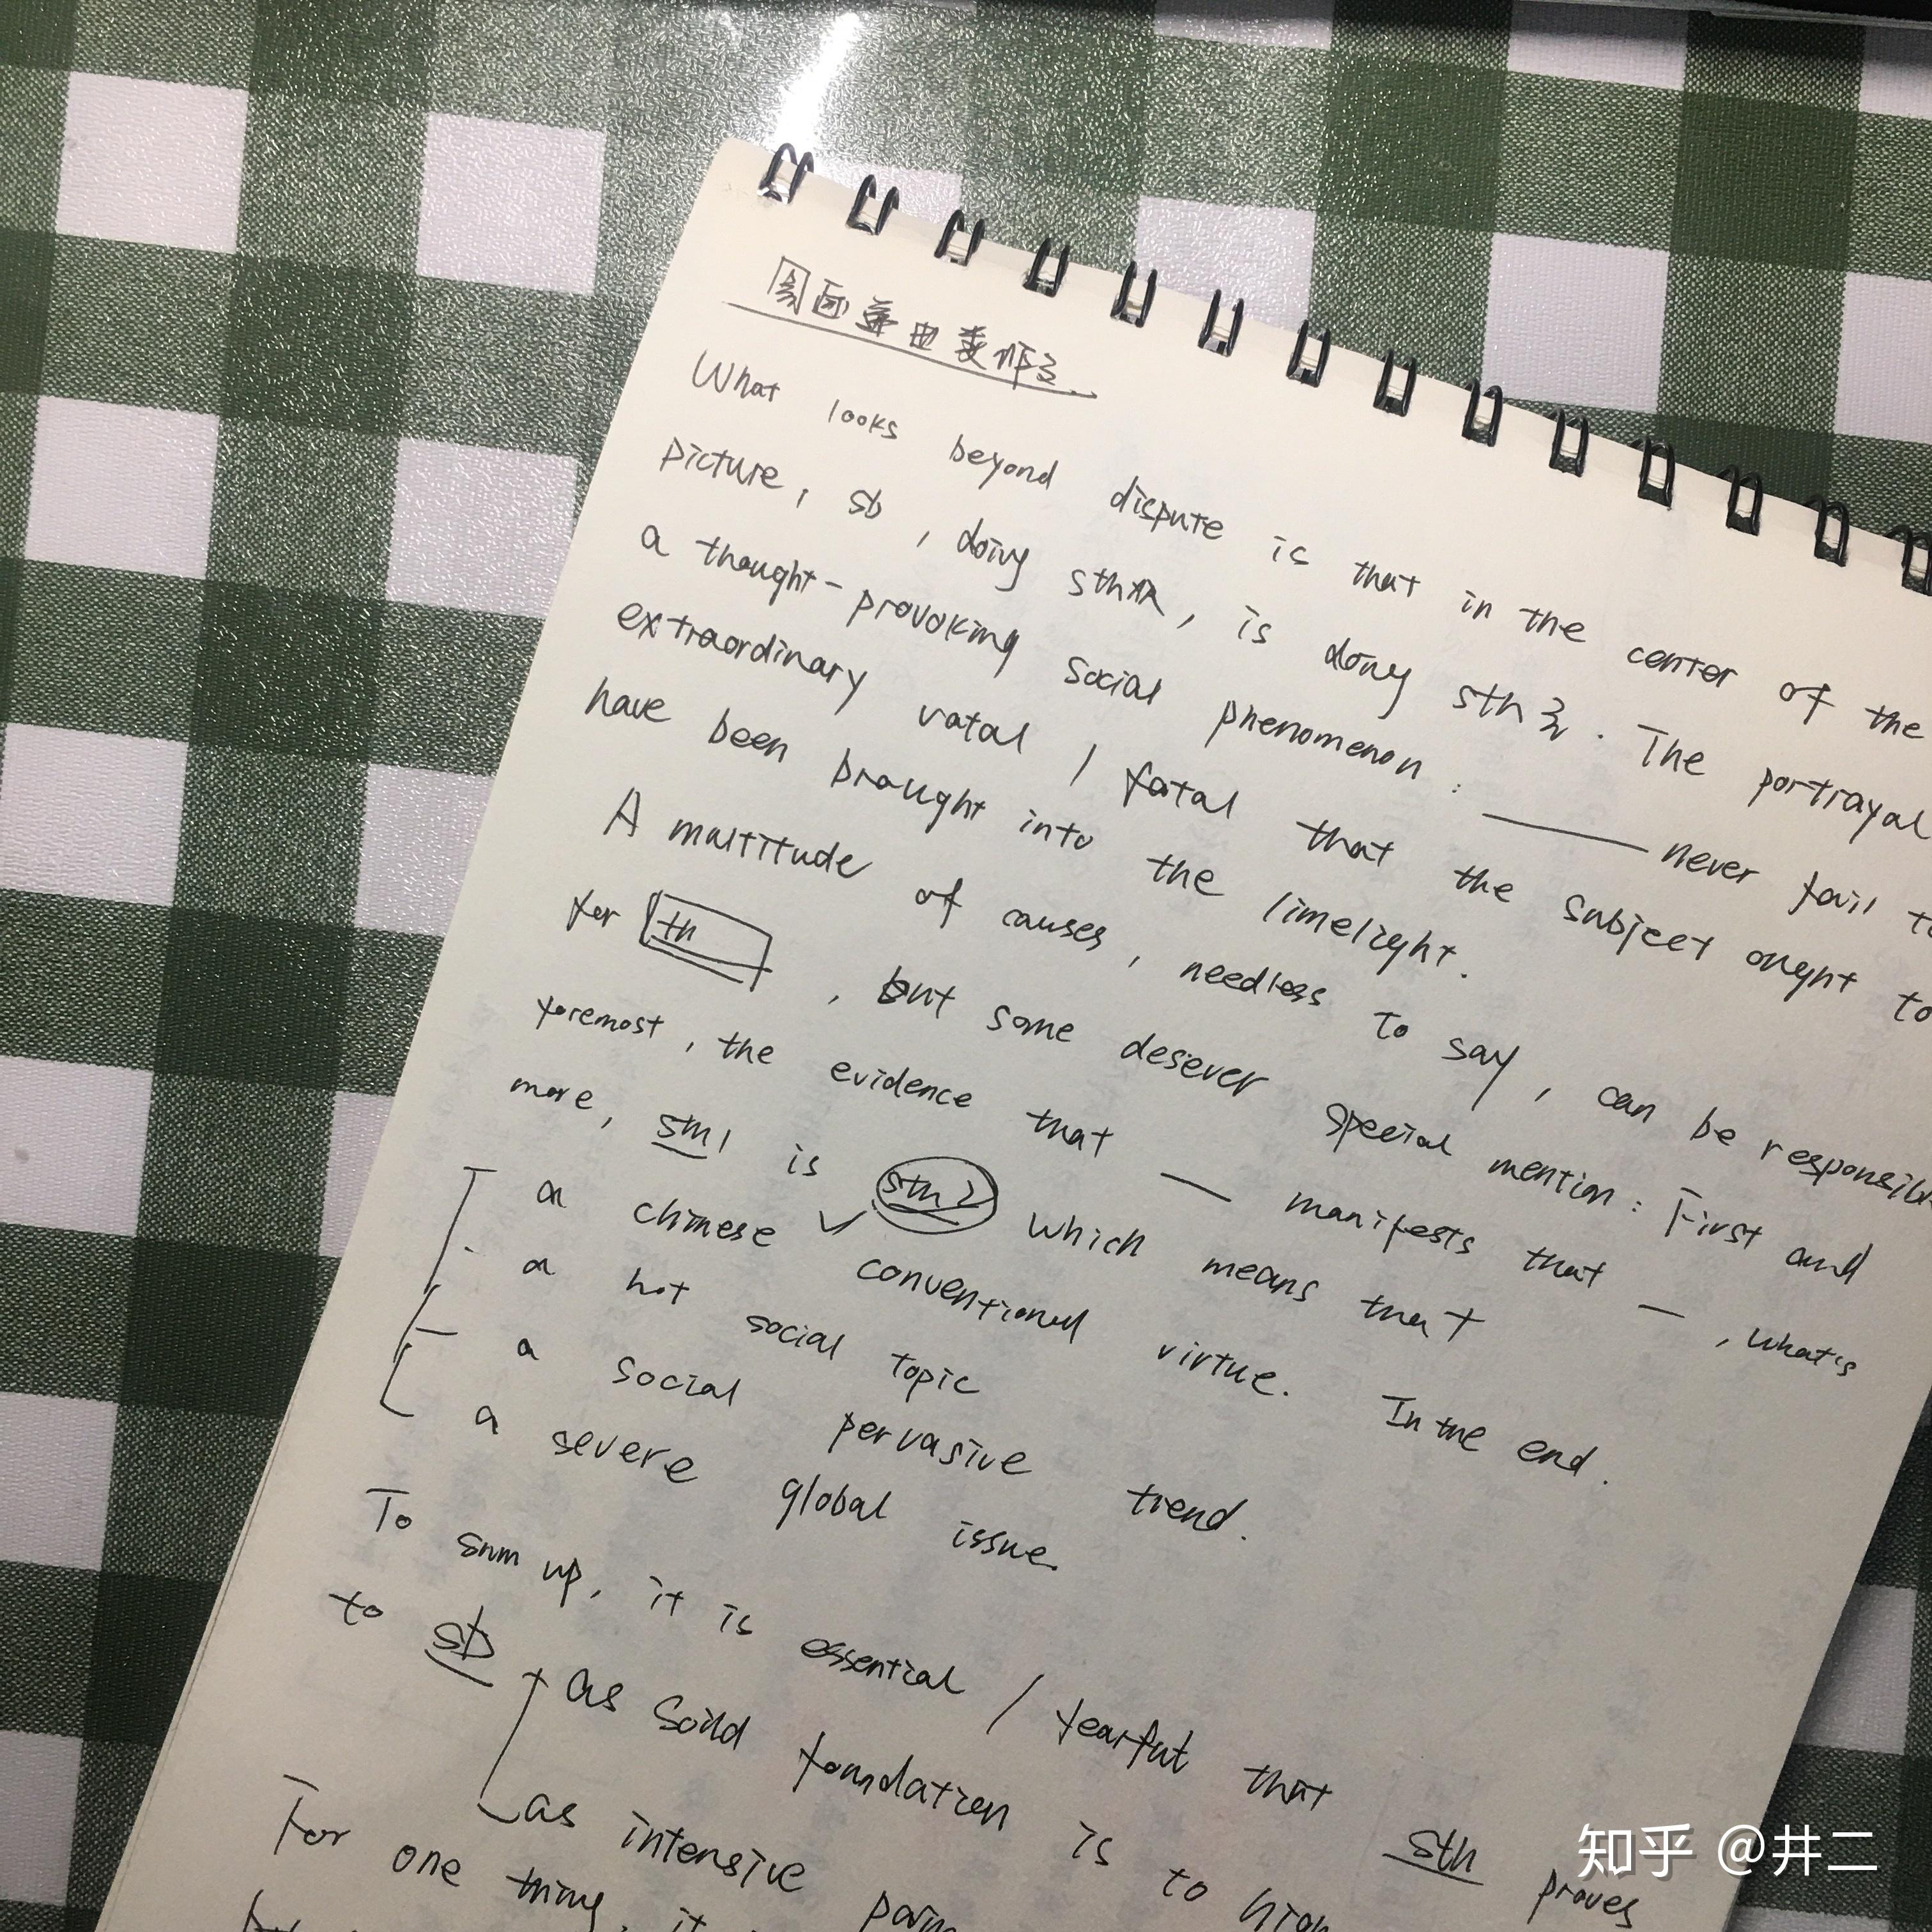 What looks beyond dispute is that in the center of the
picture, sb, doing sth, is doing sth 2. The portrayal
a thought-provoking social phenomenon: — never fail to
extraordinary vatal / fatal that the subject ought to
have been brought into the limelight.
A multitude of causes, needless to say, can be
for sth, but some desever special mention: First and
foremost, the evidence that — manifests that —, what's
more, sth1 is sth2 which means that
a chinese conventional virtue. In the end.
a hot social topic
a social pervasive trend.
a severe global issue
To sum up, it is essential / fearful that sth proves
to sb as soild foundation is to
as intensive
For one thing, it
知乎 @井二